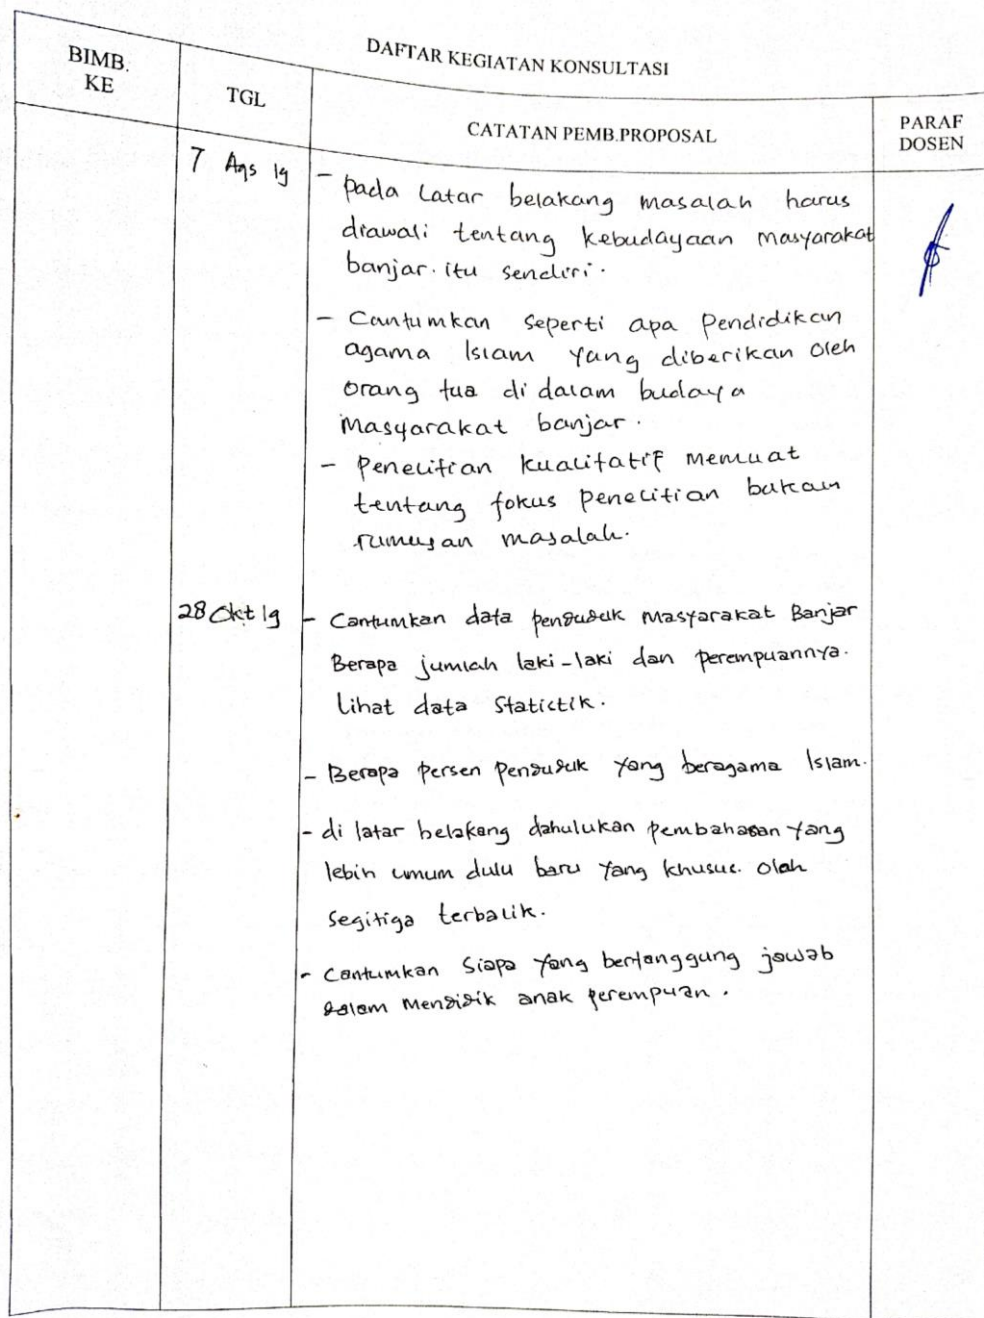 DAFTAR KEGIATAN KONSULTASI
BIMB.
KE
TGL
CATATAN PEMB.PROPOSAL
PARAF
DOSEN
7 Ags 19
- pada Latar belakang masalah harus
diawali tentang kebudayaan masyarakat
banjar. itu sendiri.
- Cantumkan seperti apa Pendidikan
agama Islam yang diberikan oleh
orang tua di dalam budaya
Masyarakat banjar.
- Penelitian kualitatif memuat
tentang fokus penelitian bukan
rumusan masalah.
28 Okt 19
- Cantumkan data penduduk masyarakat Banjar
Berapa jumlah laki-laki dan perempuannya.
Lihat data Statictik.
- Berapa persen penduduk yang beragama Islam.
- di latar belakang dahulukan pembahasan yang
lebih umum dulu baru yang khusus. olah
Segitiga terbalik.
- Cantumkan Siapa yang bertanggung jawab
dalam mendidik anak perempuan.